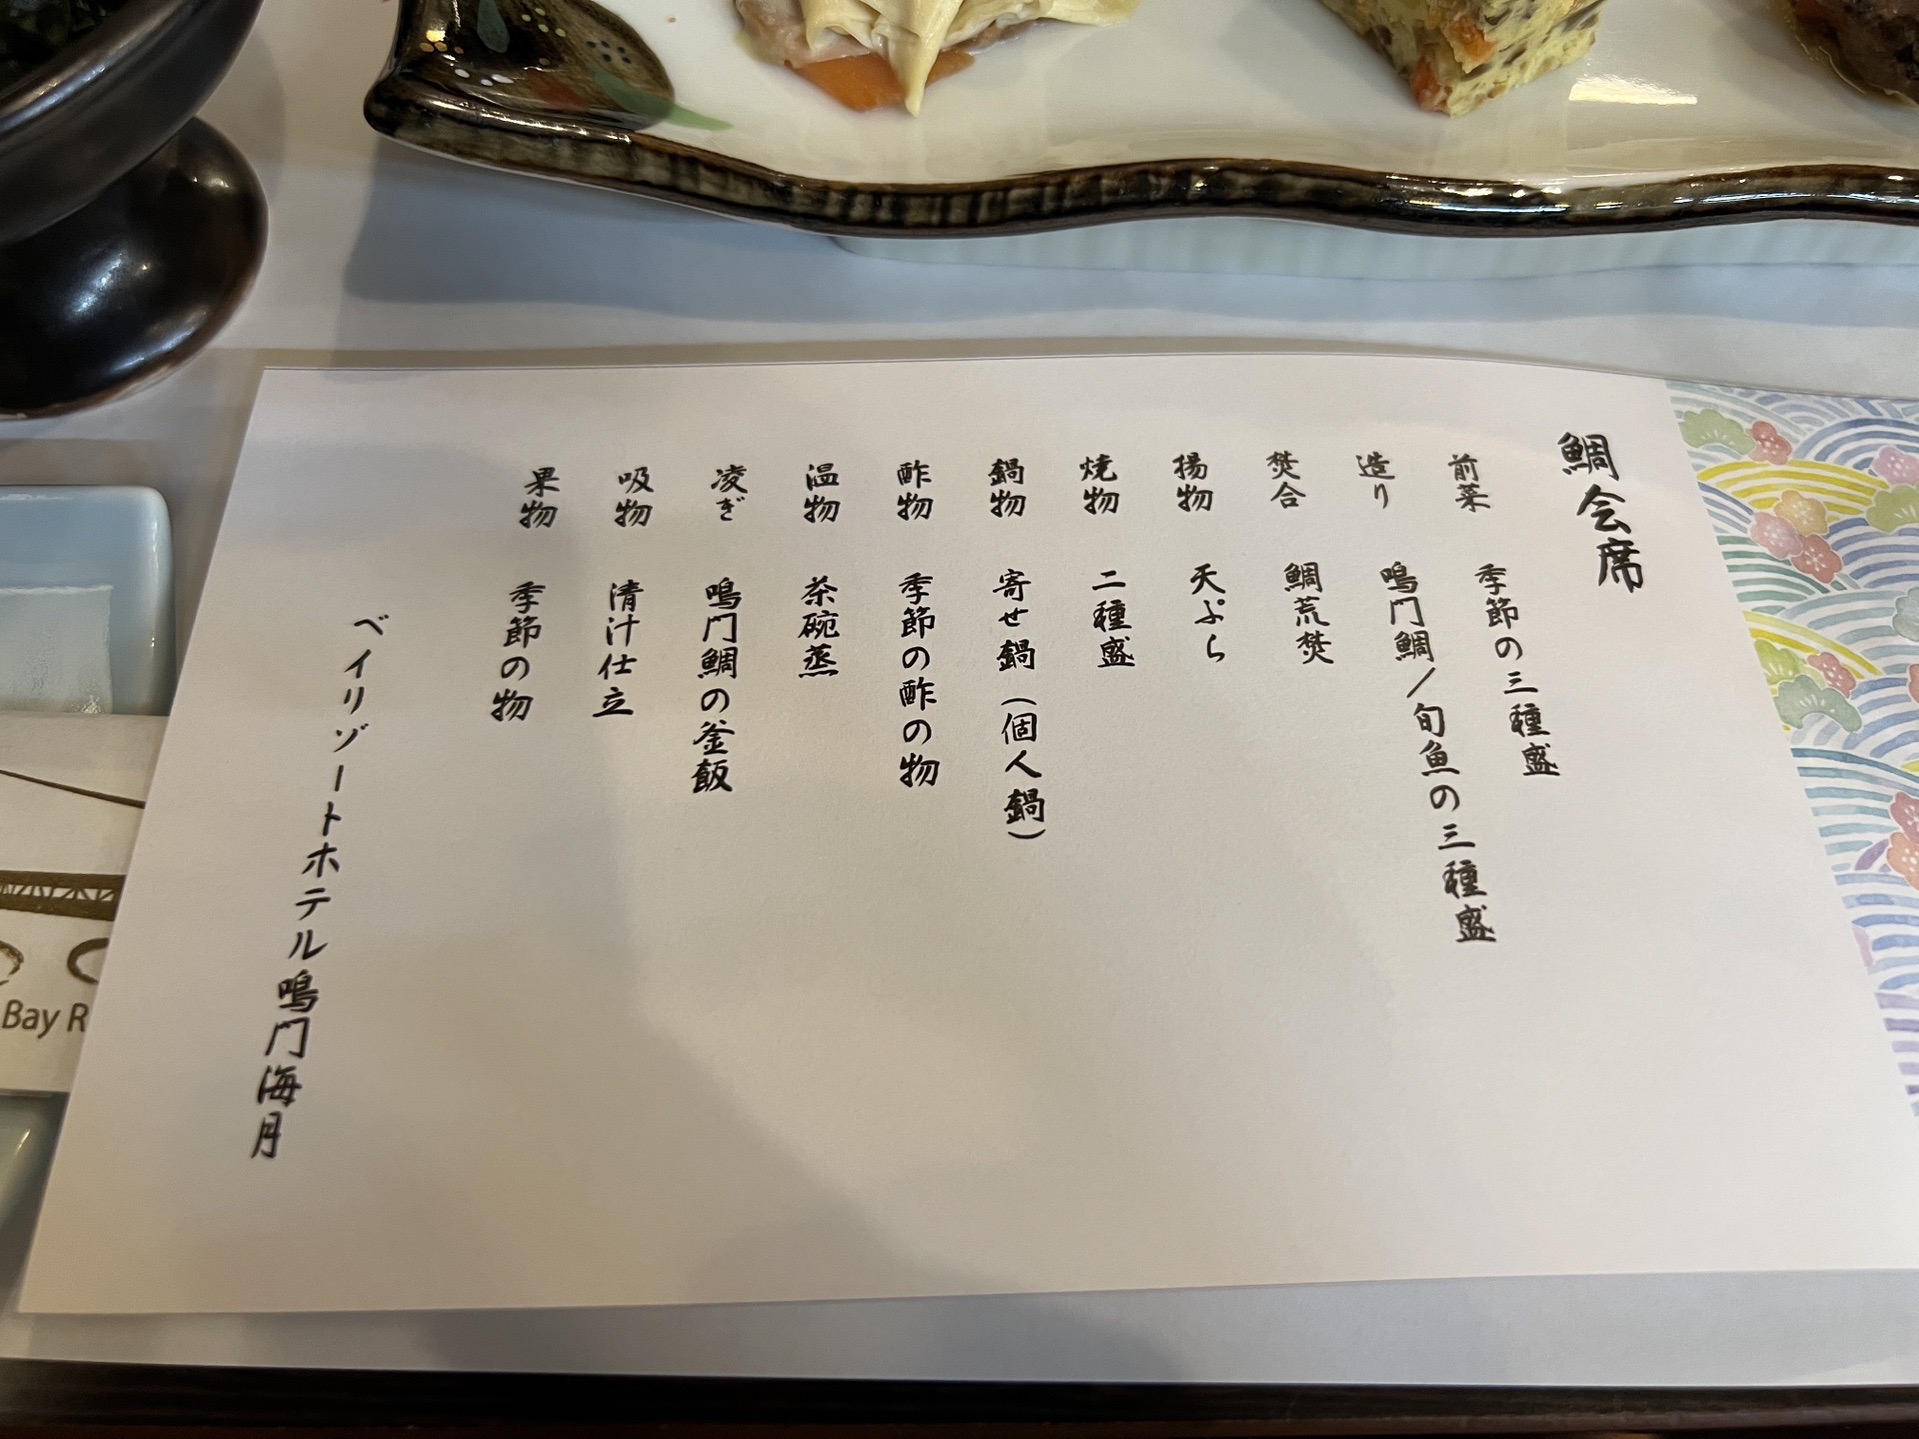 鯛会席
前菜 季節の三種盛
造り 鳴門鯛/旬魚の三種盛
焚合 鯛荒焚
揚物 天ぷら
焼物 二種盛
鍋物 寄せ鍋(個人鍋)
酢物 季節の酢の物
温物 茶碗蒸
凌ぎ 鳴門鯛の釜飯
吸物 清汁仕立
果物 季節の物
ベイリゾートホテル鳴門海月
Bay R